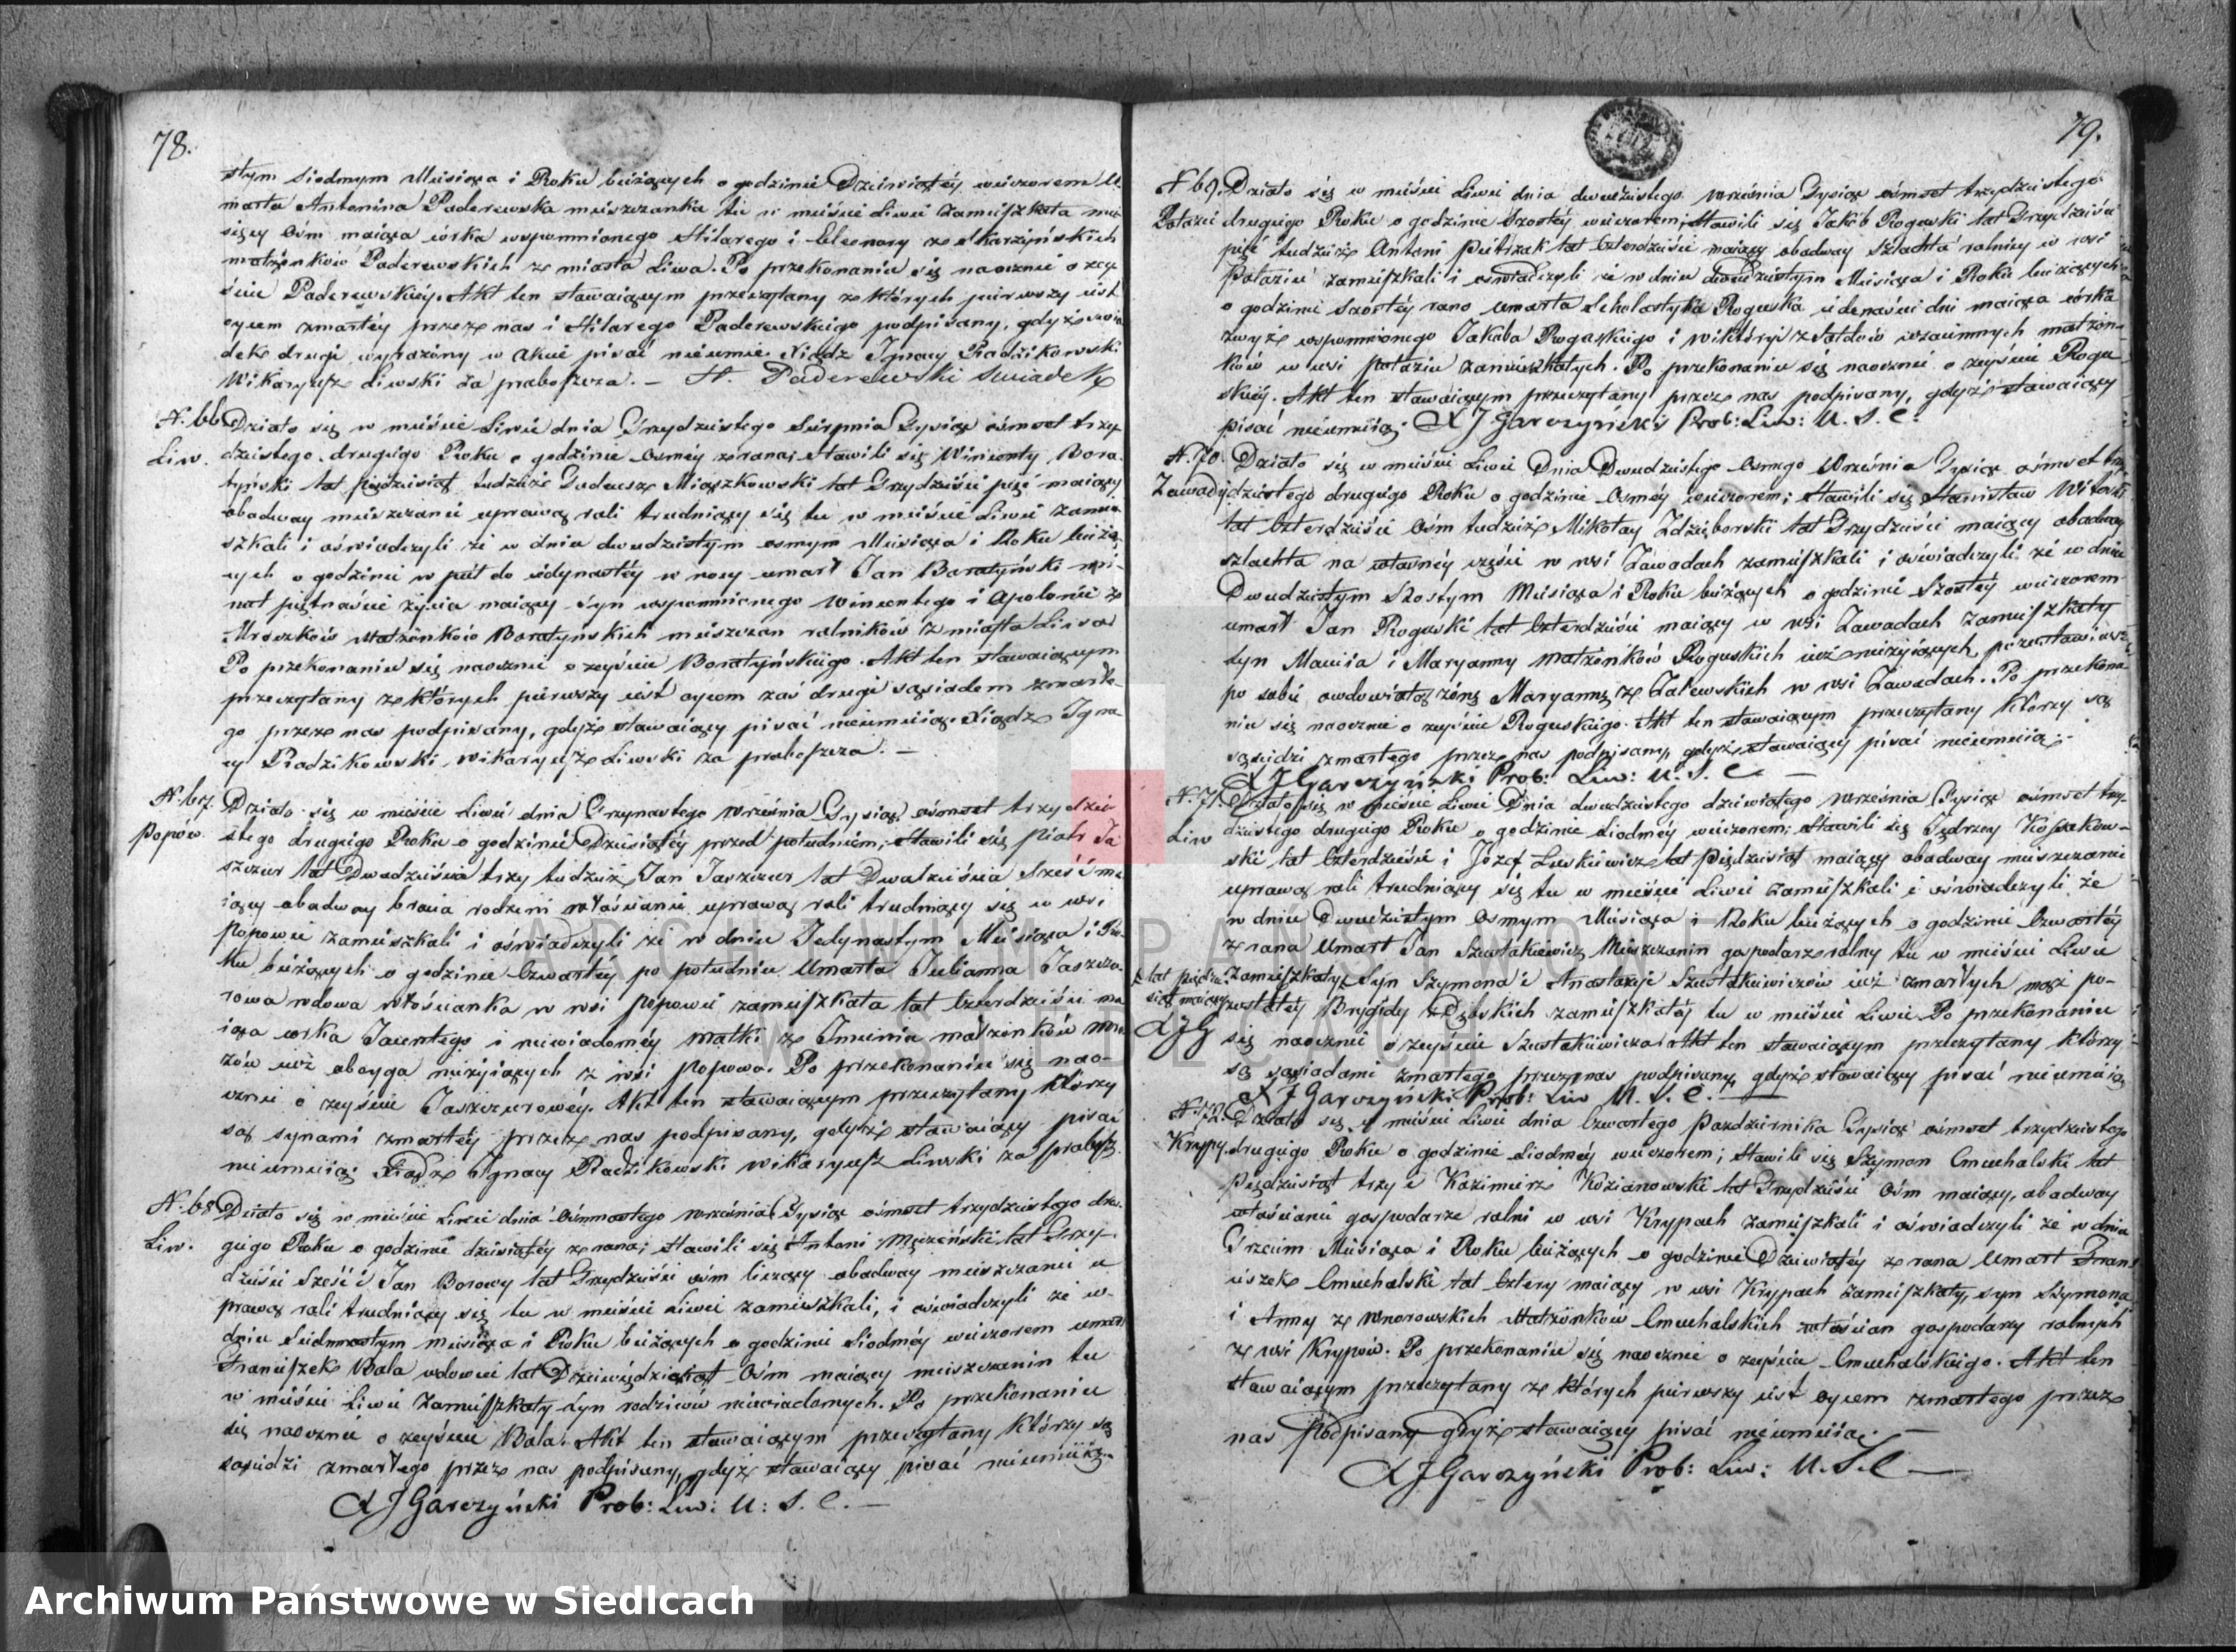 78.
stym Siedmym Miesiąca i Roku bieżących o godzinie Dziewiątéy wieczorem U-
marła Antonina Paderewska mieszczanka tu w mieście Liwie zamieszkała mie-
sięcy Ośm maiąca córka wspomnionego Hilarego i Eleonory ze Skarżyńskich
małżonków Paderewskich z miasta Liwa. Po przekonaniu się naocznie o zey-
ściu Paderewskiéy. Akt ten stawaiącym przeczytany z których pierwszy iest
oycem zmarłéy przez nas i Hilarego Paderewskiego podpisany, gdyż świa-
dek drugi wyrażony w akcie pisać nieumie. Xiądz Ignacy Radzikowski
Wikaryusz Liwski za proboszcza. — H. Paderewski Swiadek
N. 66 Działo się w mieście Liwie dnia Trzydziestego Sierpnia Tysiąc ośmset trzy-
Liw. dziestego drugiego Roku o godzinie Osméy zrana; Stawili się Wincenty Bora-
tyński lat pięćdziesiąt tudzież Tadeusz Miąszkowski lat Trzydzieści pięć maiący
obadway mieszczanie uprawą roli trudniący się tu w mieście Liwie zamie-
szkali i oświadczyli że w dniu dwudziestym osmym Miesiąca i Roku bieżą-
cych o godzinie w puł do iedynastéy w nocy umarł Jan Boratyński
nat piętnaście życia maiący Syn wspomnionego Wincentego i Apolonii z
Mroczków Małżonków Boratyńskich mieszczan rolników z miasta Liwa
Po przekonaniu się naocznie o zeyściu Boratyńskiego. Akt ten stawaiącym
przeczytany z których pierwszy iest oycem zaś drugi sąsiadem zmarłe-
go przez nas podpisany, gdyż stawaiący pisać nieumieią. Xiądz Igna-
cy Radzikowski Wikaryusz Liwski za proboszcza. —
N. 67. Działo się w mieście Liwie dnia Trzynastego Września Tysiąc ośmset trzydzie-
Popów. stego drugiego Roku o godzinie Dziesiątéy przed południem; Stawili się Piotr Ja-
szczur lat Dwadzieścia trzy tudzież Jan Jaszczur lat Dwadzieścia Sześć ma-
iący obadway bracia rodzeni włościanie uprawą roli trudniący się w wsi
Popowie zamieszkali i oświadczyli że w dniu Jedynastym Miesiąca i Ro-
ku bieżących o godzinie Czwartéy po południu Umarła Julianna Jaszczu-
rowa wdowa włościanka w wsi Popowie zamieszkała lat Czterdzieści ma-
iąca córka Jacentego i niewiadoméy matki z Imienia małżonków
zów iuż oboyga nieżyiących z wsi Popowa. Po przekonaniu się nao-
cznie o zeyściu Jaszczurowéy. Akt ten stawaiącym przeczytany którzy
są synami zmarłéy przez nas podpisany, gdyż stawaiący pisać
nieumieią; Xiądz Ignacy Radzikowski Wikaryusz Liwski za probosz.
N. 68 Działo się w mieście Liwie dnia Ośmnastego Września Tysiąc ośmset trzydziestego dru-
Liw. giego Roku o godzinie dziesiątéy zrana; Stawili się Antoni Mężeński lat Trzy-
dzieści Sześć i Jan Borowy lat Trzydzieści ośm liczący obadway mieszczanie u-
prawą roli trudniący się tu w mieście Liwie zamieszkali, i oświadczyli że w
dniu Siedmnastym miesiąca i Roku bieżących o godzinie Siodméy wieczorem umarł
Franciszek Bala wdowiec lat Dziewiędziesiąt Ośm maiący mieszczanin tu
w mieście Liwie Zamieszkały Syn rodziców niewiadomych. Po przekonaniu
się naocznie o zeyściu Bala. Akt ten stawaiącym przeczytany którzy są
sąsiedzi zmarłego przez nas podpisany, gdyż stawaiący pisać nieumieią.
X J Garczyński Prob: Liw: U: S. C. —
79.
N 69. Działo się w mieście Liwie dnia dwudziestego Września Tysiąc ośmset trzydziestego
Połazie drugiego Roku o godzinie Szostéy wieczorem; Stawili się Jakób Roguski lat Trzydzieści
pięć tudzież Antoni Pietrzak lat Czterdzieści maiący obadway Szlachta rolnicy w wsi
Połaziu zamieszkali i oświadczyli że w dniu dwudziestym Miesiąca i Roku bieżących
o godzinie Szostéy rano umarła Scholastyka Roguska iedenaście dni maiąca córka
zwyż wspomnionego Jakóba Roguskiego i Wiktoryi z Załdów wzaiemnych małżon-
ków w wsi Połaziu zamieszkałych. Po przekonaniu się naocznie o zeyściu Rogu-
skiéy. Akt ten stawaiącym przeczytany przez nas podpisany, gdyż stawaiący
pisać nieumieią; X J Garczyński Prob: Liw: U. S. C.
N. 70. Działo się w mieście Liwie Dnia Dwudziestego Osmego Września Tysiąc ośmset trzy-
Zawady dziestego drugiego Roku o godzinie Osméy wieczorem; Stawili się Stanisław
lat Czterdzieści Ośm tudzież Mikołay Zdzieborski lat Trzydzieści maiący obadway
szlachta na własnéy części w wsi Zawadach zamieszkali i oświadczyli że w dniu
Dwudziestym Szóstym Miesiąca i Roku bieżących o godzinie Szostéy wieczorem
umarł Jan Roguski lat Czterdzieści maiący w wsi Zawadach zamieszkały
Syn Macieia i Maryanny Małżonków Roguskich iuż nieżyiących, pozostawiwszy
po sobie owdowiałą żonę Maryannę z Zalewskich w wsi Zawadach. Po przekona-
niu się naocznie o zeyściu Roguskiego. Akt ten stawaiącym przeczytany którzy są
sąsiedzi zmarłego przez nas podpisany, gdyż stawaiący pisać nieumieią;
X J Garczyński Prob: Liw: U. S. C. —
N. 71. Działo się w mieście Liwie Dnia dwudziestego dziewiątego Września Tysiąc ośmset trzy-
Liw dziestego drugiego Roku o godzinie Siodméy wieczorem; Stawili się Jędrzey Kossakow-
ski lat Czterdzieści i Józef Luskiewicz lat Pięćdziesiąt maiący obadway mieszczanie
uprawą roli trudniący się tu w mieście Liwie zamieszkali i oświadczyli że
w dniu Dwudziestym Osmym Miesiąca i Roku bieżących o godzinie Czwartéy
z rana Umarł Jan Szustakiewicz Mieszczanin gospodarz rolny tu w mieście Liwie
lat pięćdzie- Zamieszkały Syn Szymona i Anastazyi Szustakiewiczów iuż zmarłych, mąż po-
siąt maiący zostałéy Brygidy z Dębskich zamieszkałéy tu w mieście Liwie. Po przekonaniu
XJG się naocznie o zeyściu Szustakiewicza. Akt ten stawaiącym przeczytany którzy
są sąsiadami zmarłego przez nas podpisany, gdyż stawaiący pisać nieumieią
X J Garczyński Prob: Liw U. S. C. —
N. 72. Działo się w mieście Liwie dnia Czwartego Pazdziernika Tysiąc ośmset trzydziestego
Krypy. drugiego Roku o godzinie Siodméy wieczorem; Stawili się Szymon Cmuchalski lat
Pięćdziesiąt trzy i Kazimierz Kozianowski lat Trzydzieści Ośm maiący, obadway
włościanie gospodarze rolni w wsi Krypach zamieszkali i oświadczyli że w dniu
Trzecim Miesiąca i Roku bieżących o godzinie Dziewiątéy z rana Umarł Fran-
ciszek Cmuchalski lat Cztery maiący w wsi Krypach zamieszkały, syn Szymona
i Anny z Wnorowskich Małżonków Cmuchalskich włościan gospodarzy rolnych
z wsi Krypów. Po przekonaniu się naocznie o zeyściu Cmuchalskiego. Akt ten
stawaiącym przeczytany z których pierwszy iest oycem zmarłego przez
nas Podpisany gdyż stawaiący pisać nieumieią. —
X J Garczyński Prob: Liw: U. S. C —
ARCHIWUM PAŃSTWOWE
W SIEDLCACH
Archiwum Państwowe w Siedlcach